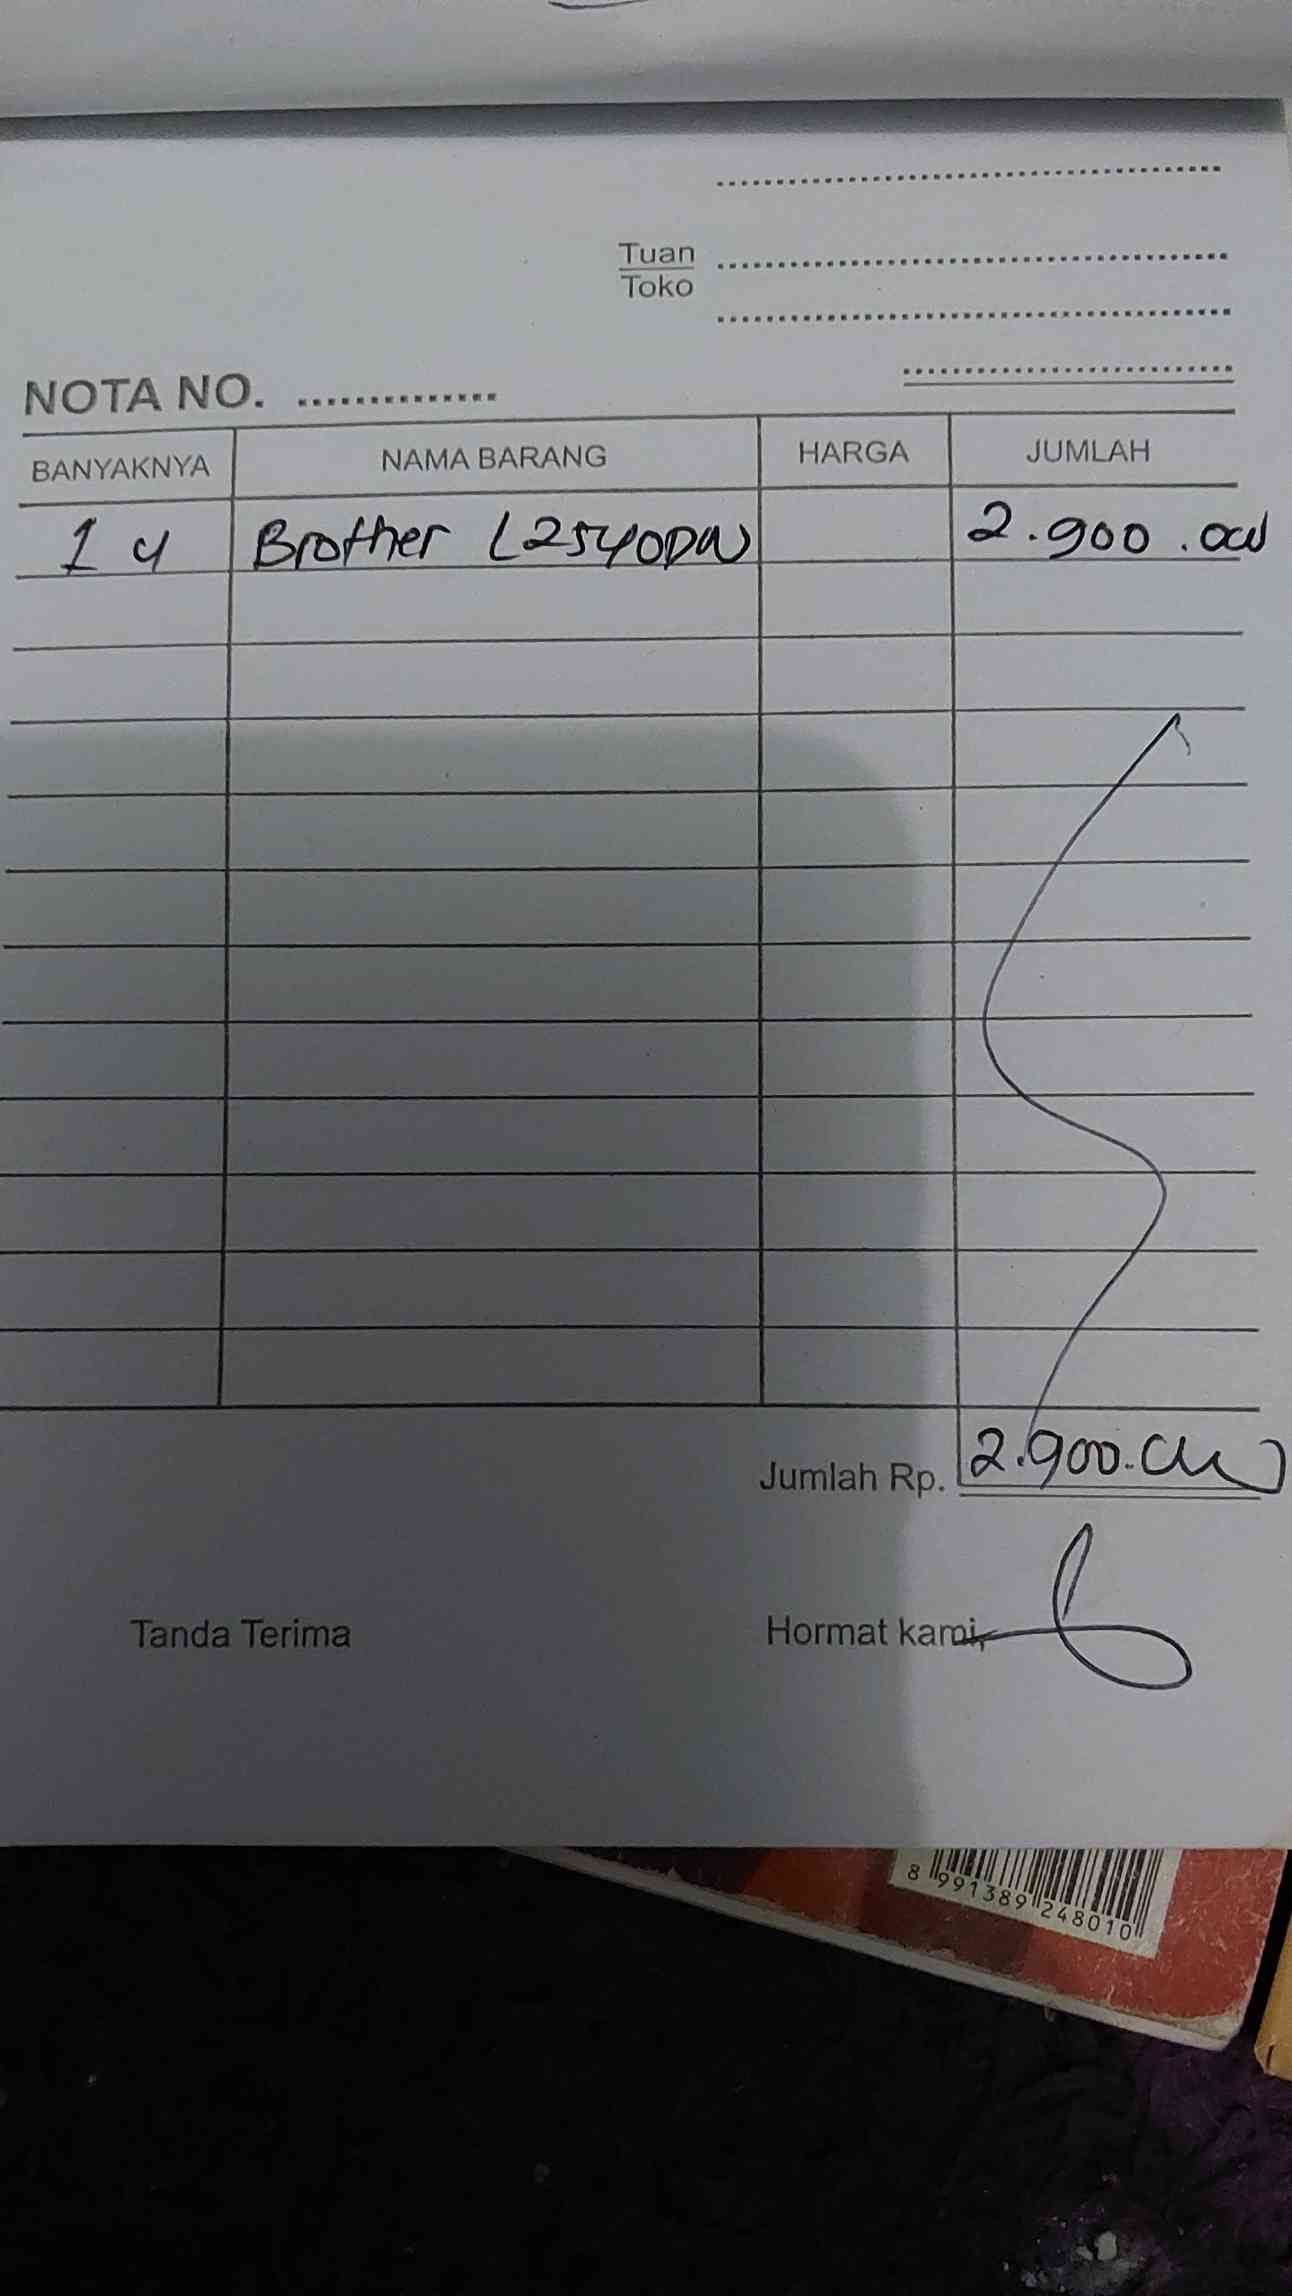 Tuan
Toko
NOTA NO. ...............
BANYAKNYA NAMA BARANG HARGA JUMLAH
1 u Brother L2540DW 2.900.000
Jumlah Rp. 2.900.000
Tanda Terima Hormat kami,
8 991389 248010